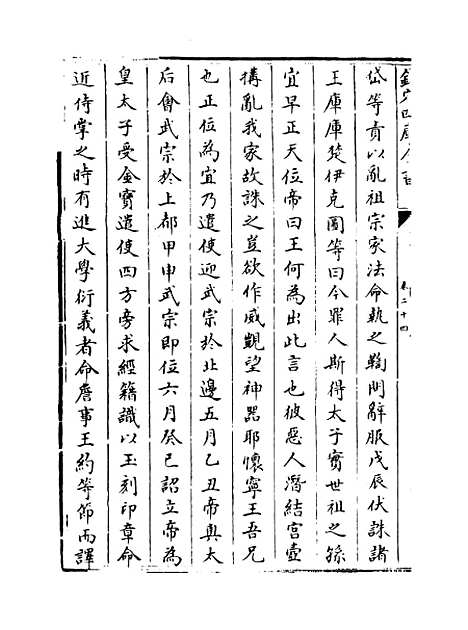 欽定四庫全書
卷二十四
岱等責以亂祖宗家法命執之鞫問辭服戊辰伏誅諸
王庫庫楚伊克圖等曰今罪人斯得太子實世祖之孫
宜早正天位帝曰王何為出此言也彼惡人潛結宮壼
搆亂我家故誅之豈欲作威覬望神器耶懷寧王吾兄
也正位為宜乃遣使迎武宗於北邊五月乙丑帝與太
后會武宗於上都甲申武宗即位六月癸巳詔立帝為
皇太子受金寶遣使四方旁求經籍識以玉刻印章命
近侍掌之時有進大學衍義者命詹事王約等節而譯